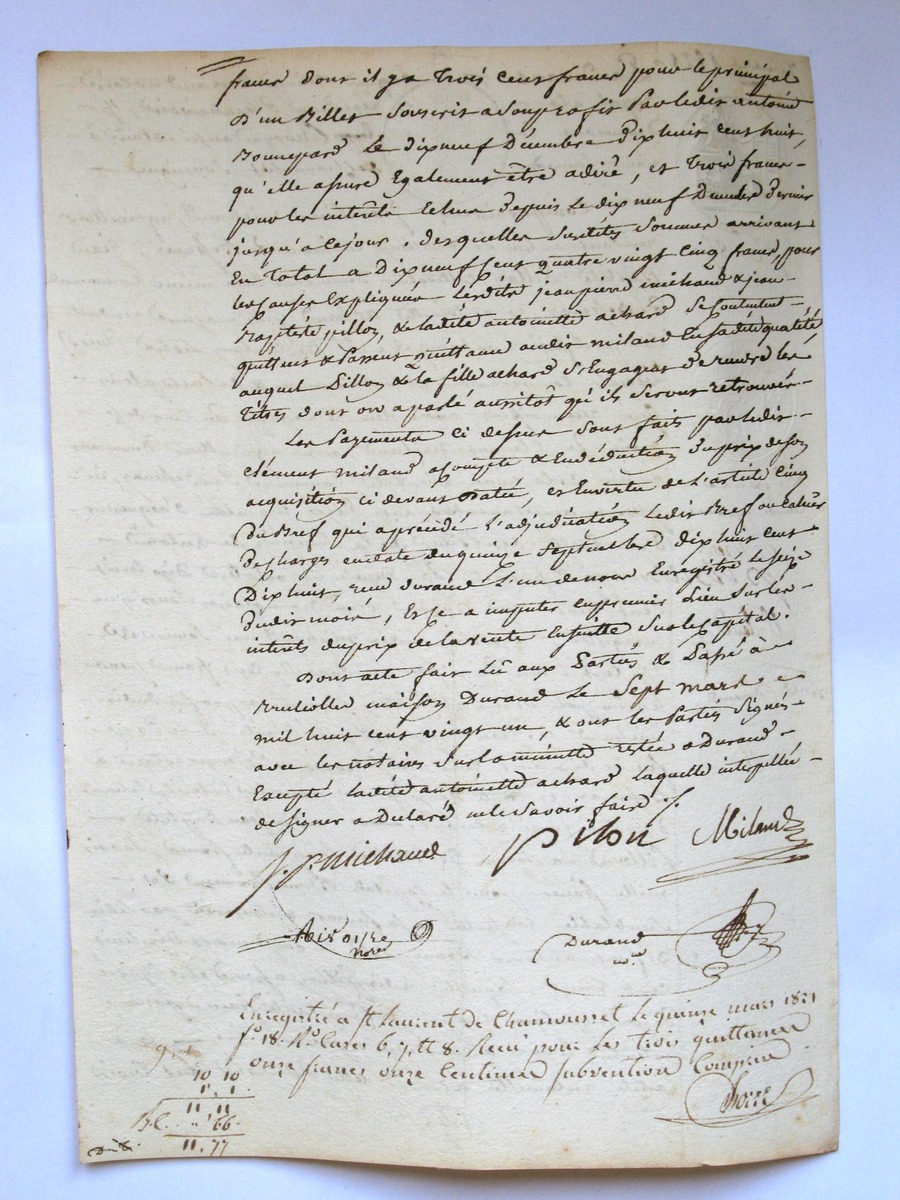 francs dont il y a Trois cent francs pour le principal
D'un Billet Souscrit a Son profit Par ledit antoine
Bonnepard Le dixneuf Décembre dixhuit cent huit,
qu'elle assure Egalement être adiré, et Trois francs
pour les interêts Echus depuis Le dixneuf Décembre dernier
jusqu'a ce jour. desquelles Susdites Sommes arrivant
En Total a Dixneuf Cent quatre vingt Cinq francs, pour
les Causes Expliquées Lesdits jean pierre michaud & jean
Baptiste pillon, & ladite antoinette achard Se Contentent
quittent & Passent quittance audit miland En Sa dite qualité
auquel Pillon & la fille achard S'Engagent de rendre les
Titres dont on a parlé aussitôt qu'ils Seront retrouvés
Les Payements ci dessus Sont faits par ledit
Clément miland a Compte & En déduction du prix de Son
acquisition ci devant Datée, et En vertu de L'article Cinq
Du Bref qui a précédé L'adjudication, Ledit Bref ou Cahier
Des Charges en date du quinze Septembre dix huit cent
Dix huit, reçu durand L'un de nous Enregistré le Seize
Dudit mois, Et Se a imputer en premier Lieu Sur les
interêts du prix de la vente Ensuite Sur le Capital.
Dont acte fait Lû aux Parties & Passé à
Brullioles maison Durand Le Sept mars
mil huit cent vingt un, & ont les Parties Signés
avec les notaires Sur la minute restée a Durand
Excepté ladite antoinette achard laquelle interpellée
de Signer a Déclaré ne le Savoir faire ./.
j. p. Michaud Pilon Miland
Durand
Enregistré a St Laurent de Chamousset Le quinze mars 1821
fo. 18. Ro. Cases 6, 7, et 8. Reçu pour les trois quittances
onze francs onze Centimes Subvention Comprise
10 10
1. 1
11 11
66
11. 77